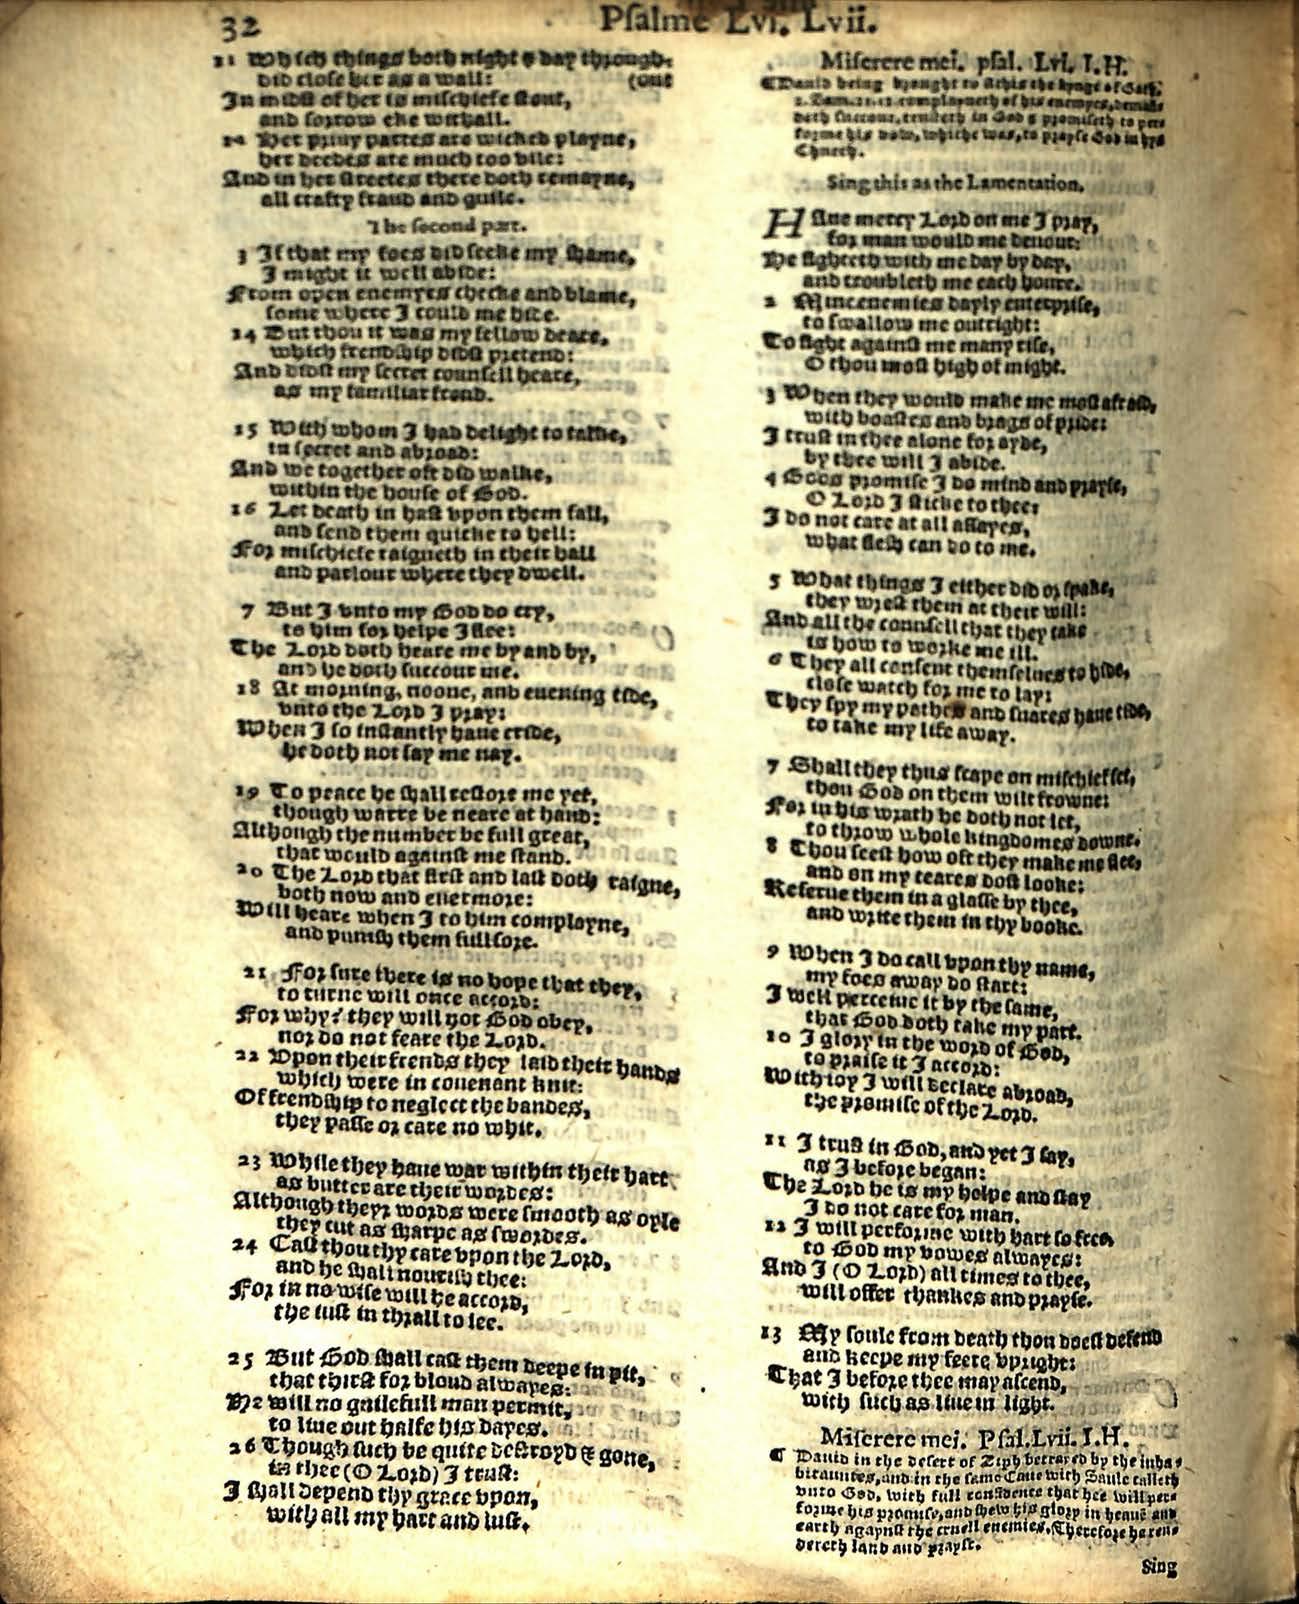 32
Psalme Lvi. Lvii.
11 Which things both night & day through-
did close her as a wall: (out
In midst of her is mischiefe stout,
and sorrow eke withall.
12 Her priuy partes are wicked playne,
her deedes are much too vile:
And in her streetes there doth remayne,
all crafty fraud and guile.
The second part.
3 If that my foes did seeke my shame,
I might it well abide:
From open enemyes checke and blame,
some where I could me hide.
14 But thou it was my fellow deare,
which frendship didst pretend:
And didst my secret counsell heare,
as my familiar frend.
15 With whom I had delight to talke,
in secret and abroad:
And we together oft did walke,
within the house of God.
16 Let death in hast vpon them fall,
and send them quicke to hell:
For mischiefe raigneth in their hall
and parlour where they dwell.
7 But I vnto my God do cry,
to him for helpe I flee:
The Lord doth heare me by and by,
and he doth succour me.
18 At morning, noone, and euening tide,
vnto the Lord I pray:
When I so instantly haue cride,
he doth not say me nay.
19 To peace he shall restore me yet,
though warre be neare at hand:
Although the number be full great,
that would against me stand.
20 The Lord that first and last doth raigne,
both now and euermore:
Will heare when I to him complayne,
and punish them full sore.
21 For sure there is no hope that they,
to turne will once accord:
For why? they will not God obey,
nor do not feare the Lord.
22 Vpon their frends they laid their hands
which were in couenant knit:
Of frendship to neglect the bandes,
they passe or care no whit.
23 While they haue war within their hart
as butter are their wordes:
Although theyr words were smooth as oyle
they cut as sharpe as swordes.
24 Cast thou thy care vpon the Lord,
and he shall nourish thee:
For in no wise will he accord,
the iust in thrall to see.
25 But God shall cast them deepe in pit,
that thirst for bloud alwayes:
He will no guilefull man permit,
to liue out halfe his dayes.
26 Though such be quite destroyd & gone,
in thee (O Lord) I trust:
I shall depend thy grace vpon,
with all my hart and lust.
Miserere mei. psal. Lvi. I.H.
¶Dauid being brought to Achis the kynge of Gath,
2. Sam. 21.12 complayneth of his enemyes, deman-
deth succour, trusteth in God & promiseth to per-
forme his vow, whiche was, to prayse God in hys
Church.
Sing this as the Lamentation.
HAue mercy Lord on me I pray,
for man would me deuour:
He fighteth with me day by day,
and troubleth me each houre.
2 Mine enemies dayly enterprise,
to swallow me outright:
To fight against me many rise,
O thou most high of might.
3 When they would make me most afraid,
with boastes and brags of pride:
I trust in thee alone for ayde,
by thee will I abide.
4 Gods promise I do mind and prayse,
O Lord I sticke to thee:
I do not care at all assayes,
what flesh can do to me.
5 What things I either did or spake,
they wrest them at their will:
And all the counsell that they take
is how to worke me ill.
6 They all consent themselues to hide,
close watch for me to lay:
They spy my pathes and snares haue tide,
to take my life away.
7 Shall they thus scape on mischief set,
thou God on them wilt frowne:
For in his wrath he doth not let,
to throw whole kingdomes downe.
8 Thou seest how oft they make me flee,
and on my teares dost looke:
Reserue them in a glasse by thee,
and write them in thy booke.
9 When I do call vpon thy name,
my foes away do start:
I well perceiue it by the same,
that God doth take my part.
10 I glory in the word of God,
to praise it I accord:
With ioy I will declare abroad,
the promise of the Lord.
11 I trust in God, and yet I say,
as I before began:
The Lord he is my helpe and stay
I do not care for man.
12 I will performe with hart so free,
to God my vowes alwayes:
And I (O Lord) all times to thee,
will offer thankes and prayse.
13 My soule from death thou doest defend
and keepe my feete vpright:
That I before thee may ascend,
with such as liue in light.
Miserere mei. Psal. Lvii. I.H.
¶ Dauid in the desert of Ziph betrayed by the inha-
bitauntes, and in the same Caue with Saule calleth
vnto God, with full confidence that hee will per-
forme his promise, and shew his glory in heauē and
earth agaynst the cruell enemies. Therefore he ren-
dereth laud and prayse.
Sing